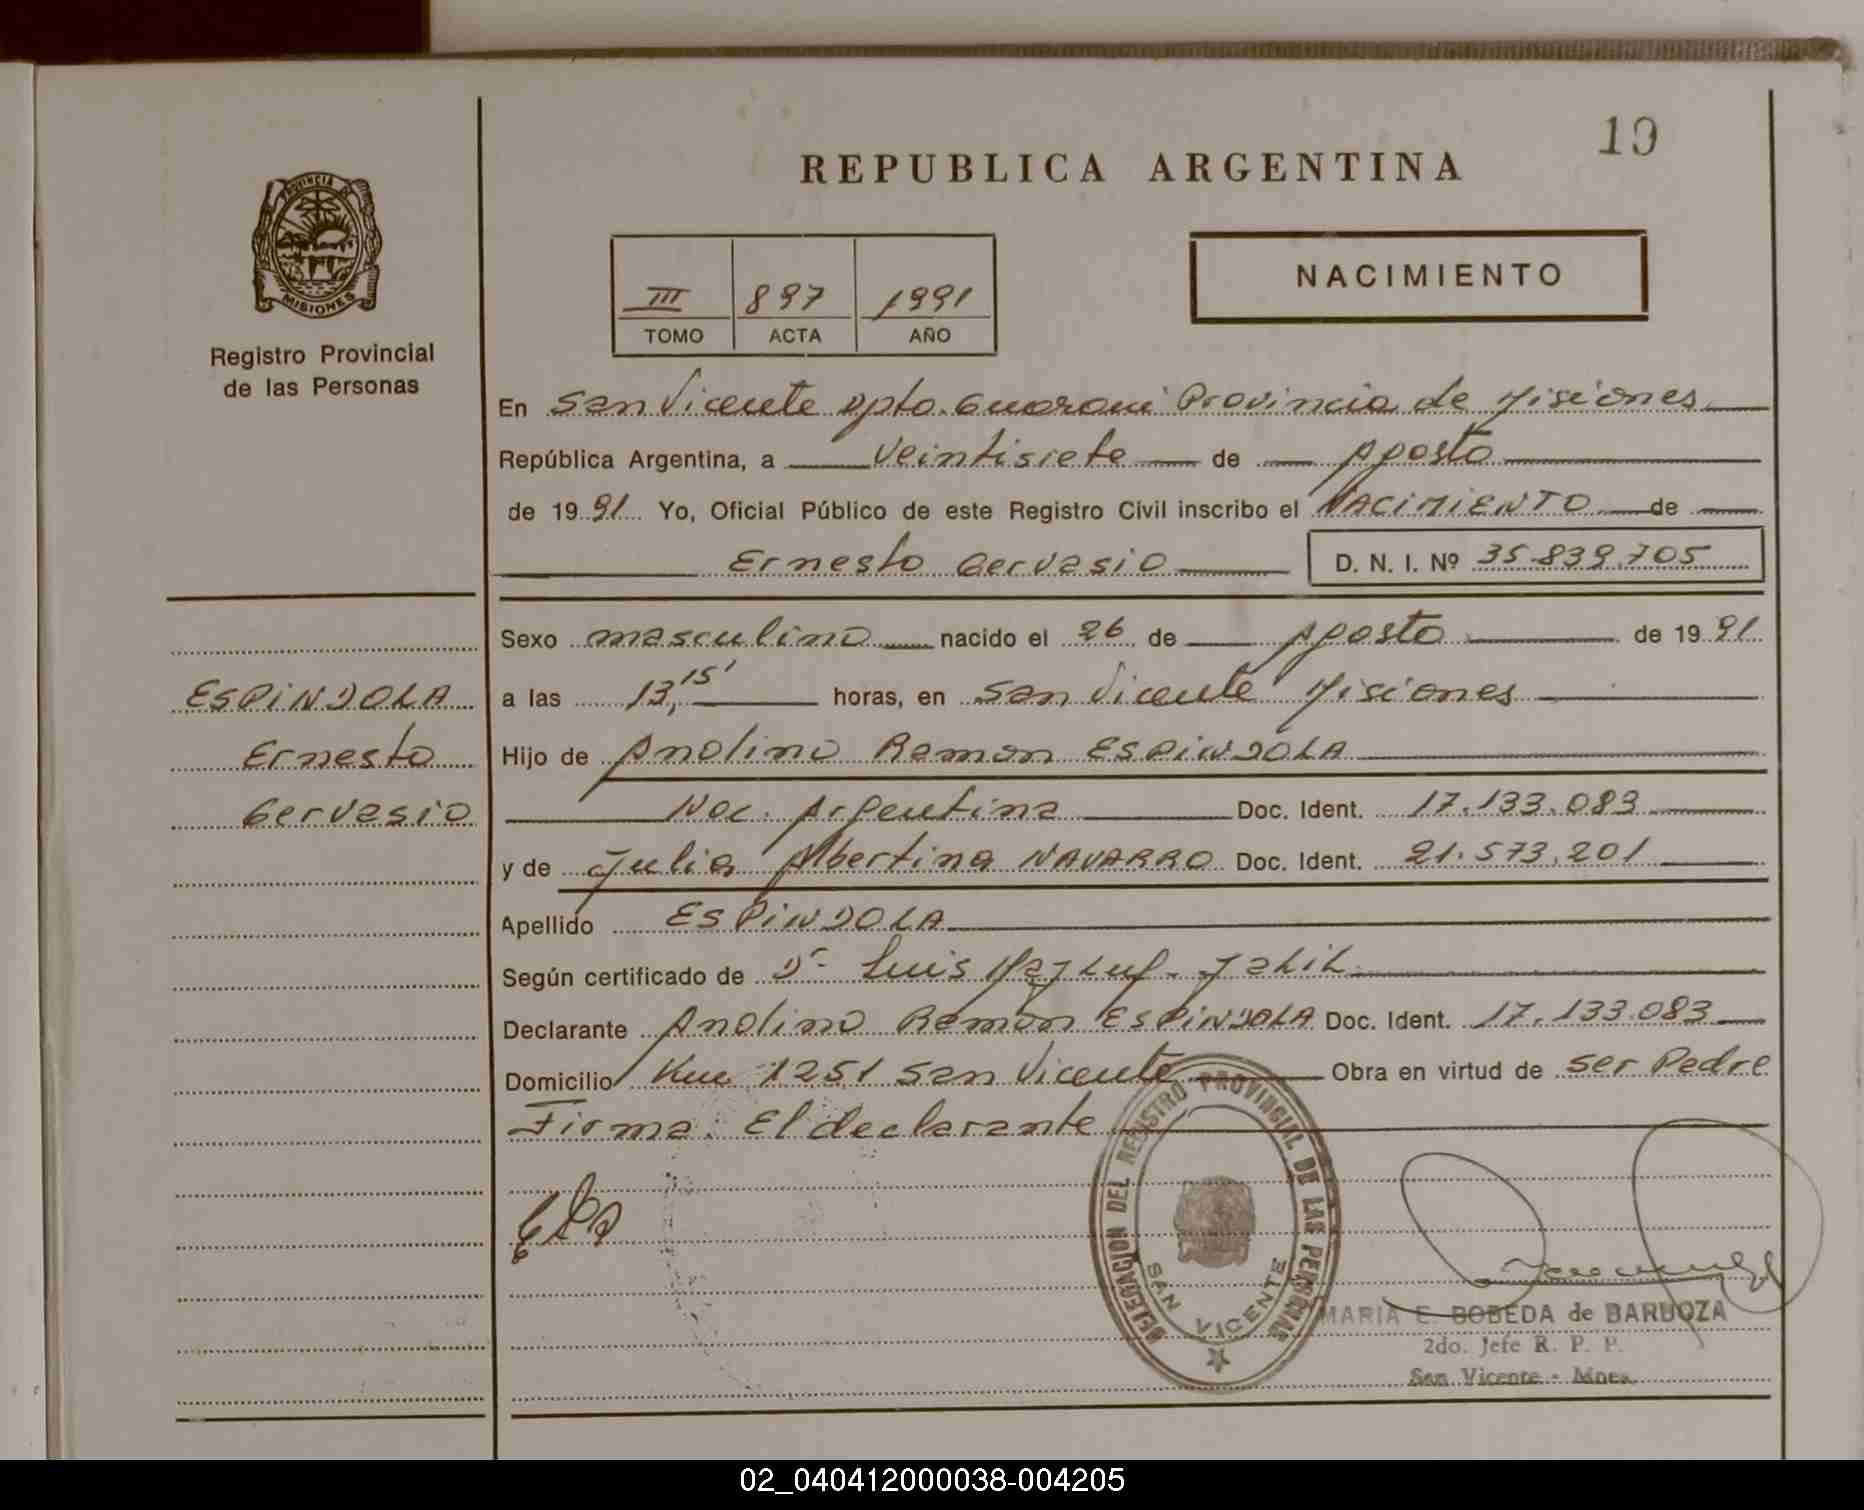 19
REPUBLICA ARGENTINA
PROVINCIA DE
MISIONES
Registro Provincial
de las Personas
III 897 1991
TOMO ACTA AÑO
NACIMIENTO
En San Vicente Dpto. Guarani Provincia de Misiones
República Argentina, a veintisiete de Agosto
de 1991 Yo, Oficial Público de este Registro Civil inscribo el NACIMIENTO de
Ernesto Gervasio D. N. I. Nº 35.839.705
Sexo masculino nacido el 26 de Agosto de 1991
ESPINDOLA
Ernesto
Gervasio
a las 13,15' horas, en San Vicente Misiones
Hijo de Anolino Ramon ESPINDOLA
Nac. Argentina Doc. Ident. 17.133.083
y de Julia Albertina NAVARRO Doc. Ident. 21.573.201
Apellido ESPINDOLA
Según certificado de Dr. Luis
Declarante Anolino Ramon ESPINDOLA Doc. Ident. 17.133.083
Domicilio Km 1251 San Vicente Obra en virtud de ser Padre
Firma: El declarante
DELEGACION DEL REGISTRO PROVINCIAL DE LAS PERSONAS
SAN VICENTE
MARIA E. BOBEDA de BARBOZA
2do. Jefe R. P. P.
San Vicente - Mnes.
02_040412000038-004205